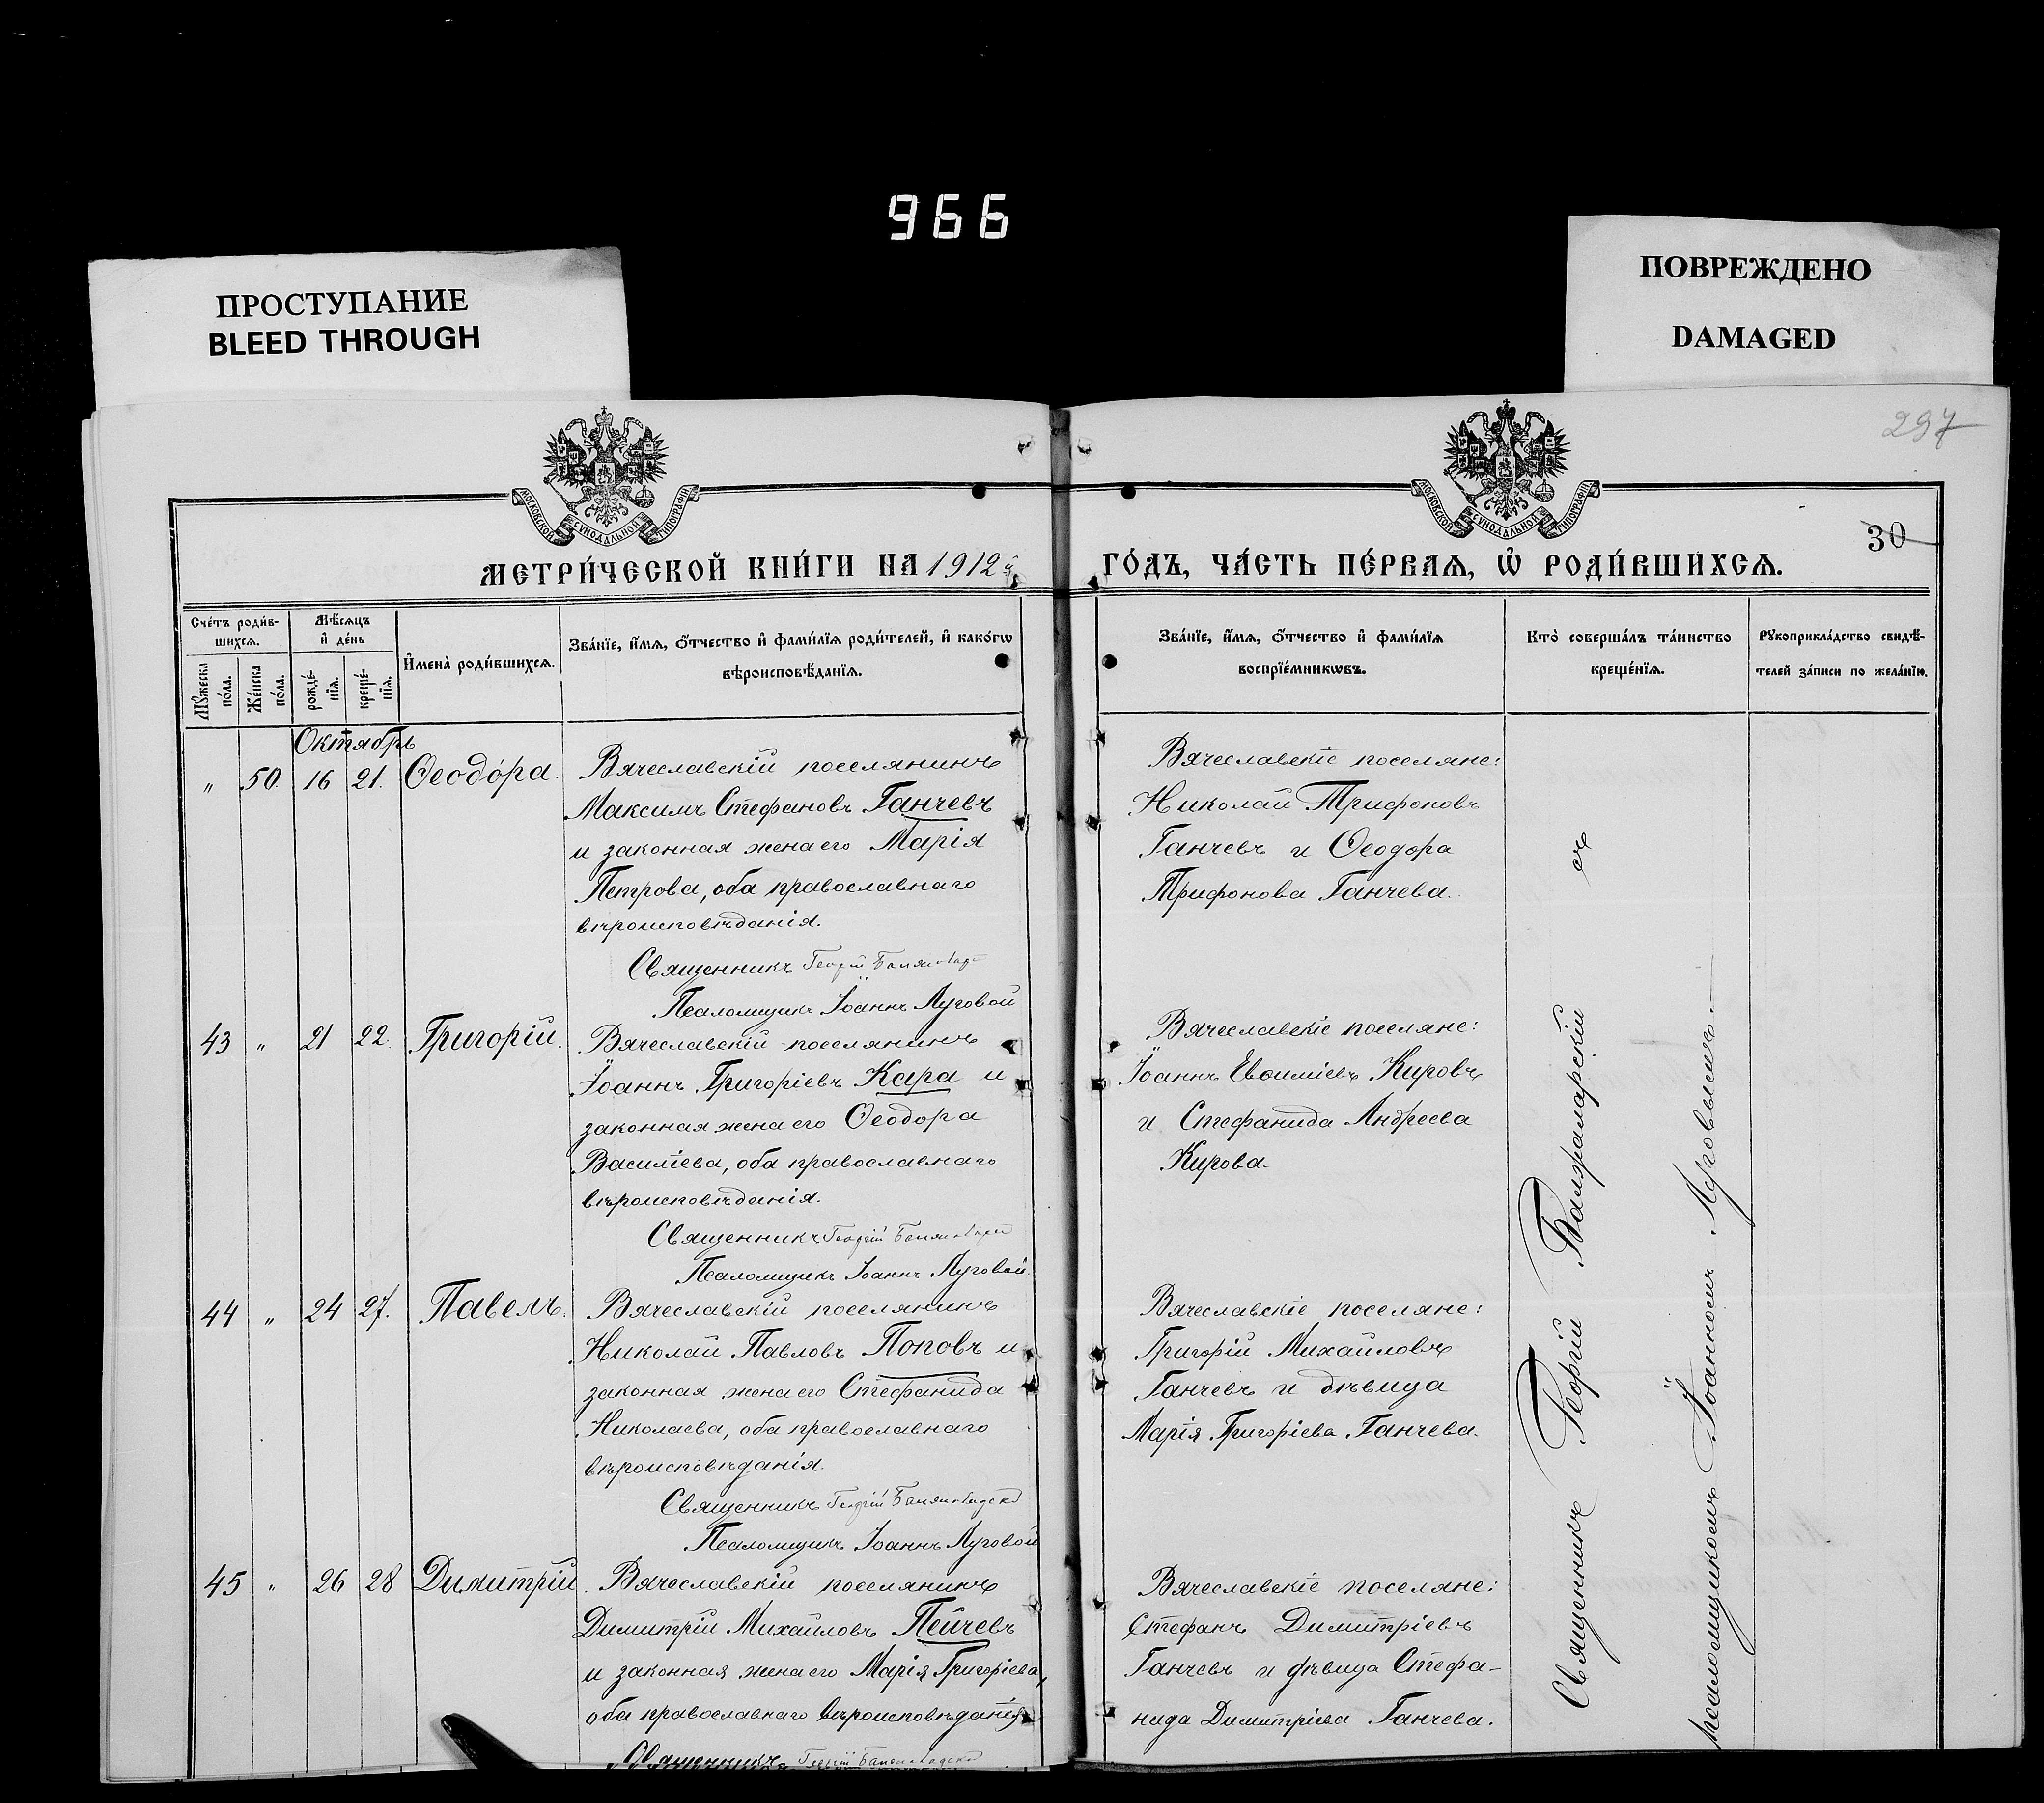 966
ПРОСТУПАНИЕ
BLEED THROUGH
ПОВРЕЖДЕНО
DAMAGED
297
30
МОСКОВСКОЙ СѴНОДАЛЬНОЙ ТИПОГРАФІИ
МОСКОВСКОЙ СѴНОДАЛЬНОЙ ТИПОГРАФІИ
МЕТРИ́ЧЕСКОЙ КНИ́ГИ НА 1912й
ГО́ДЪ, ЧА́СТЬ ПЕ́РВАѦ, Ѽ РОДИ́ВШИХСѦ.
Сче́тъ роди́в-
шихсѧ.
Мꙋжеска
по́ла.
Же́нска
по́ла.
Мѣ́сѧцъ
и҆ де́нь
рожде́-
нїѧ.
креще́-
нїѧ.
И҆мена̀ роди́вшихсѧ.
Зва́нїе, и҆́мѧ, ѻ҆́тчество и҆ фами́лїѧ роди́телей, и҆ како́гѡ
вѣроисповѣ́данїѧ.
Зва́нїе, и҆́мѧ, ѻ҆́тчество и҆ фами́лїѧ
воспрїе́мникѡвъ.
Кто̀ соверша́лъ та́инство
креще́нїѧ.
Рꙋкоприкла́дство свидѣ́-
телей за́писи по жела́нїю.
Октябрь
" 50. 16 21. Ѳеодо́ра.
Вячеславскій поселянинъ
Максимъ Стефановъ Ганчевъ
и законная жена его Марія
Петрова, оба православнаго
вѣроисповѣданія.
Священникъ Георгій
Псаломщикъ Іоаннъ Луговой
Вячеславскіе поселяне:
Николай Трифоновъ
Ганчевъ и Ѳеодора
Трифонова Ганчева.
43 " 21 22. Григорій.
Вячеславскій поселянинъ
Іоаннъ Григоріевъ Кара и
законная жена его Ѳеодора
Василіева, оба православнаго
вѣроисповѣданія.
Священникъ Георгій
Псаломщикъ Іоаннъ Луговой.
Вячеславскіе поселяне:
Іоаннъ Евѳиміевъ Кировъ
и Стефанида Андреева
Кирова.
44 " 24 27. Павелъ.
Вячеславскій поселянинъ
Николай Павловъ Поповъ и
законная жена его Стефанида
Николаева, оба православнаго
вѣроисповѣданія.
Священникъ Георгій
Псаломщикъ Іоаннъ Луговой
Вячеславскіе поселяне:
Григорій Михайловъ
Ганчевъ и дѣвица
Марія Григоріева Ганчева.
45 " 26 28 Димитрій.
Вячеславскій поселянинъ
Димитрій Михайловъ Пейчевъ
и законная жена его Марія Григоріева,
оба православнаго вѣроисповѣданія
Священникъ Георгій
Вячеславскіе поселяне:
Стефанъ Димитріевъ
Ганчевъ и дѣвица Стефа-
нида Димитріева Ганчева.
Священникъ Георгій съ
псаломщикомъ Іоанномъ Луговымъ.